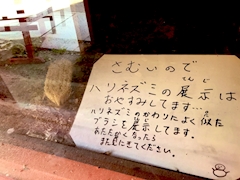 さむいので
てんじ
ハリネズミの展示は
おやすみしてます…
に
ハリネズミのかわりによく似た
てんじ
ブラシを展示してます。
あたたかくなったら
またきてください。